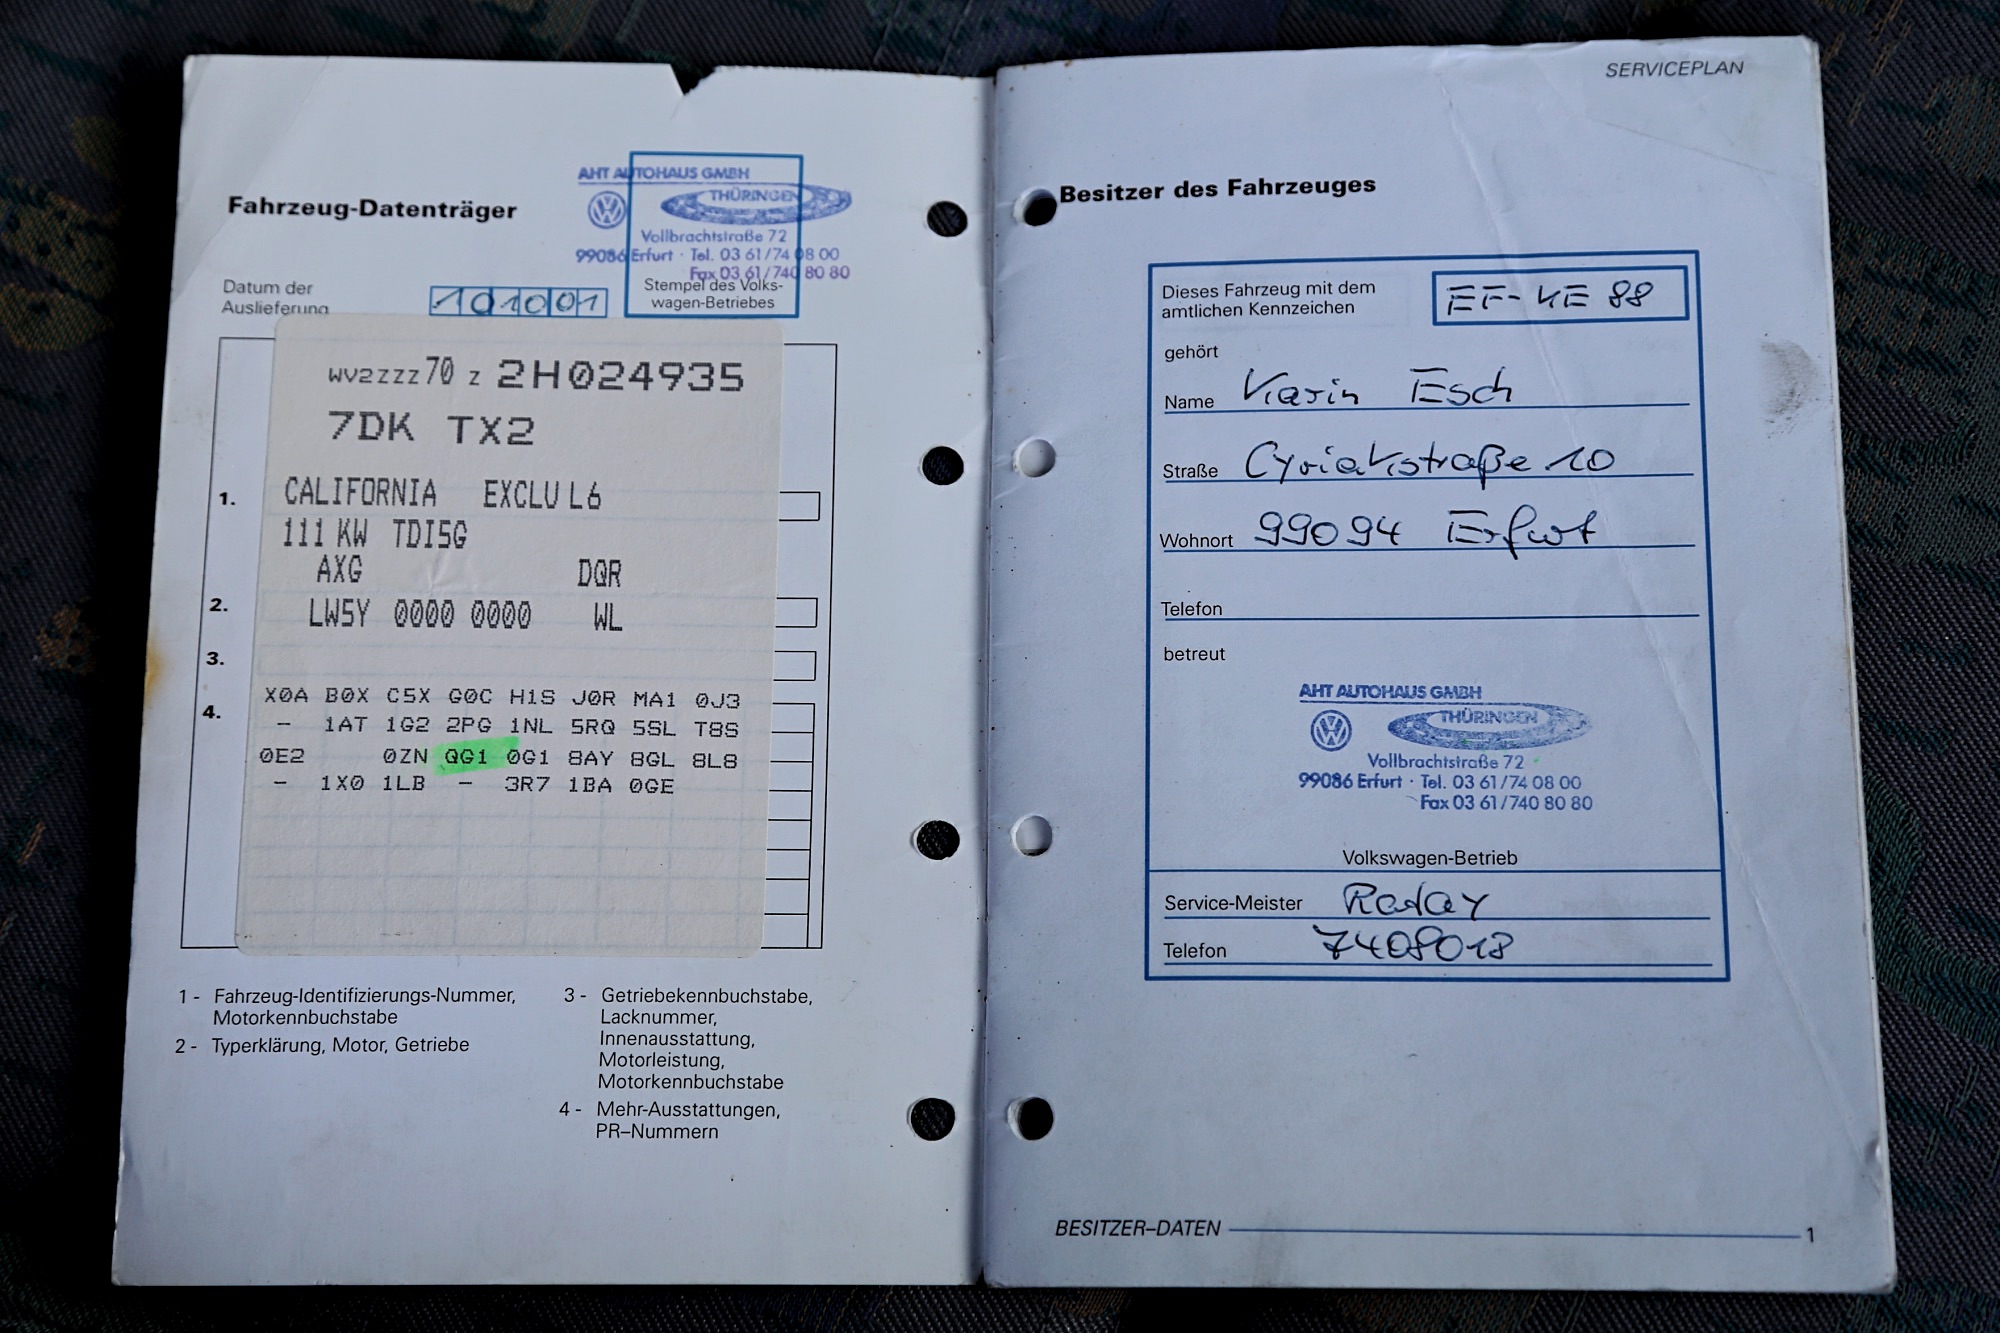 Fahrzeug-Datenträger
AHT AUTOHAUS GMBH
THÜRINGEN
Vollbrachtstraße 72
99086 Erfurt · Tel. 03 61/74 08 00
Fax 03 61/740 80 80
Datum der
Auslieferung
101001
Stempel des Volks-
wagen-Betriebes
WV2ZZZ70 Z 2H024935
7DK TX2
1.
CALIFORNIA EXCLU L6
111 KW TDI5G
AXG DQR
2.
LW5Y 0000 0000 WL
3.
X0A B0X C5X G0C H1S J0R MA1 0J3
4.
- 1AT 1G2 2PG 1NL 5RQ 5SL T8S
0E2 0ZN QG1 0G1 8AY 8GL 8L8
- 1X0 1LB - 3R7 1BA 0GE
1 - Fahrzeug-Identifizierungs-Nummer,
Motorkennbuchstabe
2 - Typerklärung, Motor, Getriebe
3 - Getriebekennbuchstabe,
Lacknummer,
Innenausstattung,
Motorleistung,
Motorkennbuchstabe
4 - Mehr-Ausstattungen,
PR-Nummern
SERVICEPLAN
Besitzer des Fahrzeuges
Dieses Fahrzeug mit dem
amtlichen Kennzeichen
EF-KE 88
gehört
Name Karin Esch
Straße Cyriakstraße 10
Wohnort 99094 Erfurt
Telefon
betreut
AHT AUTOHAUS GMBH
THÜRINGEN
Vollbrachtstraße 72
99086 Erfurt · Tel. 03 61/74 08 00
Fax 03 61/740 80 80
Volkswagen-Betrieb
Service-Meister
Telefon 7408018
BESITZER-DATEN 1